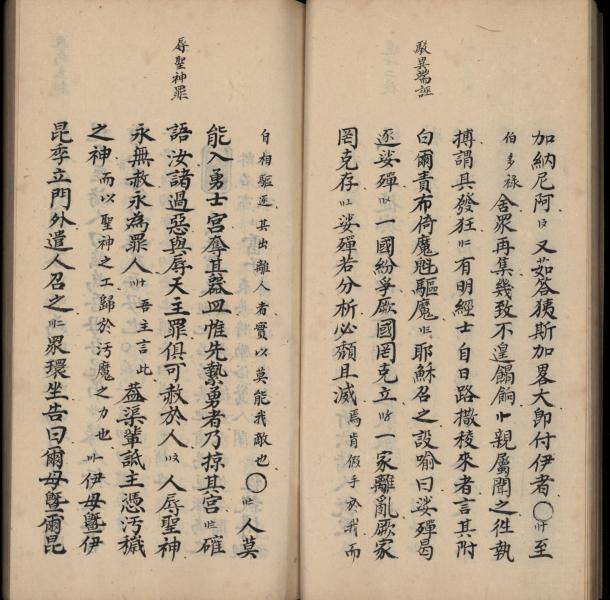 駁異端誣
加納尼阿又茹荅猗斯加畧大即付伊者〇至
伯多祿舍眾再集幾致不遑餉親屬聞之徃執
搏謂具發狂有明經士自日路撒稜來者言其附
白爾責布倚魔魁驅魔耶穌召之設喻曰娑殫曷
逐娑殫一國紛爭厥國罔克立一家離亂厥家
罔克存娑殫若分析必頹且滅焉肯假手於我而
辱聖神罪
自相驅逐其出離人者實以莫能我敵也〇人莫
能入勇士宮奪其器皿惟先縶勇者乃掠其宮確
語汝諸過惡與辱天主罪俱可赦於人人辱聖神
永無赦永為罪人吾主言此葢渠輩詆主憑汚穢
之神而以聖神之工歸於汚魔之力也伊母曁伊
昆季立門外遣人召之眾環坐告曰爾母曁爾昆